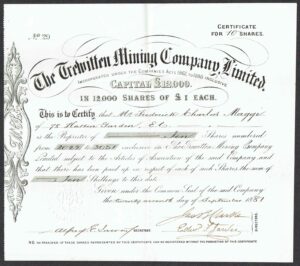 CERTIFICATE
FOR 10 SHARES.
The Trewitten Mining Company, Limited.
INCORPORATED UNDER THE COMPANIES ACTS 1862 TO 1880 INCLUSIVE
CAPITAL £12000.
IN 12000 SHARES OF £1 EACH.
This is to Certify that Mr Frederick Charles Maggs
of Hatton Garden, E.C.
is the Proprietor of Ten Shares numbered
from to inclusive in The Trewitten Mining Company
Limited subject to the Articles of Association of the said Company and
that there has been paid up in respect of each of such Shares the sum of
Ten Shillings to this date
Given under the Common Seal of the said Company
the twenty second day of September 1881
SECRETARY
DIRECTORS.
NO TRANSFER OF THESE SHARES REPRESENTED BY THIS CERTIFICATE CAN BE REGISTERED WITHOUT THE PRODUCTION OF THIS CERTIFICATE